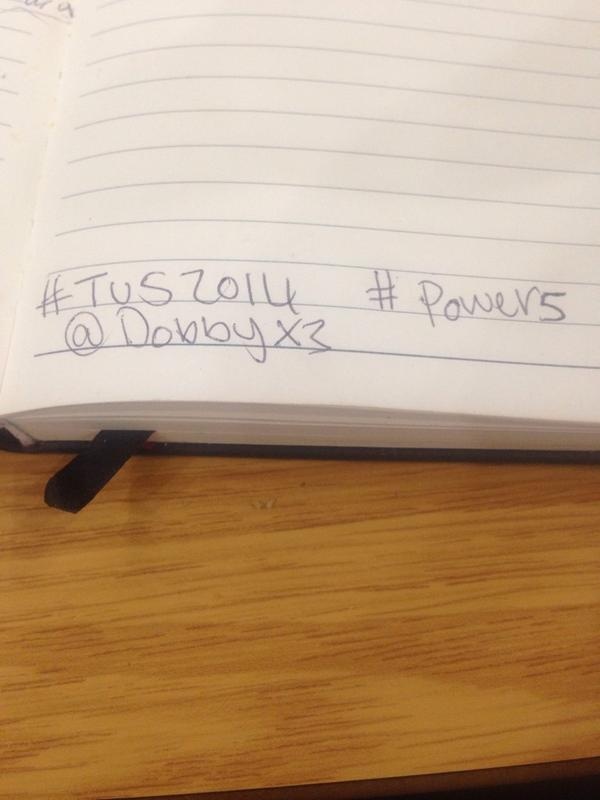 #TUS2014 #Power5
@Dobbyx3